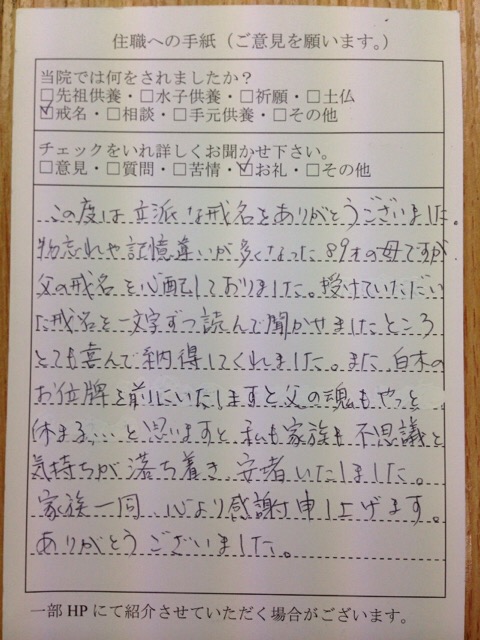 住職への手紙（ご意見を願います。）
当院では何をされましたか？
□先祖供養・□水子供養・□祈願・□土仏
☑戒名・□相談・□手元供養・□その他
チェックをいれ詳しくお聞かせ下さい。
□意見・□質問・□苦情・☑お礼・□その他
この度は立派な戒名をありがとうございました。
物忘れや記憶違いが多くなった89才の母ですが
父の戒名を心配しておりました。授けていただい
た戒名を一文字ずつ読んで聞かせましたところ
とても喜んで納得してくれました。また白木の
お位牌を前にいたしますと父の魂もやっと
休まる…と思いますと私も家族も不思議と
気持ちが落ち着き安者いたしました。
家族一同 心より感謝申し上げます。
ありがとうございました。
一部HPにて紹介させていただく場合がございます。